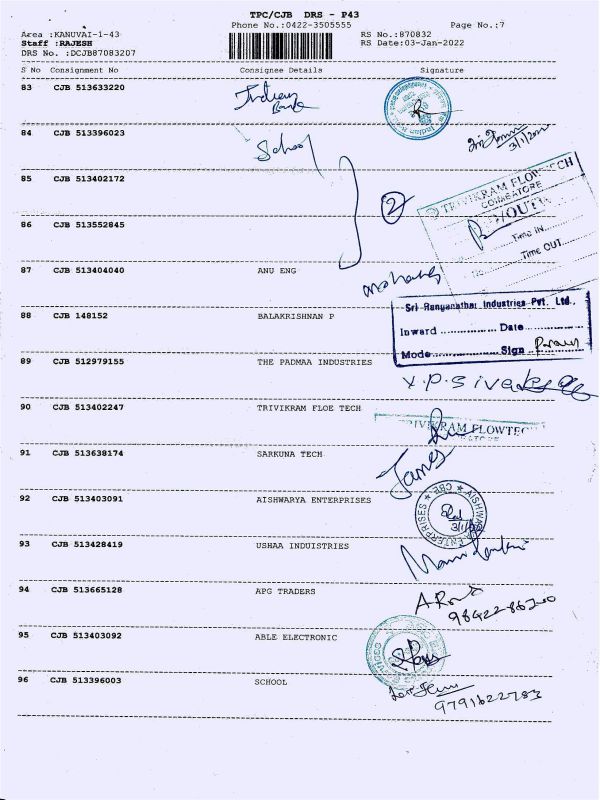 TPC/CJB DRS - P43
Phone No.:0422-3505555 Page No.:7
Area :KANUVAI-1-43 RS No.:870832
Staff :RAJESH RS Date:03-Jan-2022
DRS No. :DCJB87083207
S No Consignment No Consignee Details Signature
83 CJB 513633220 Indian Bank
84 CJB 513396023 School
3/1/2022
85 CJB 513402172
TRIVIKRAM FLOWTECH
COIMBATORE
2
IN/OUT
86 CJB 513552845
Time IN
Time OUT
87 CJB 513404040 ANU ENG
88 CJB 148152 BALAKRISHNAN P
Sri Ranganathar Industries Pvt. Ltd.,
Inward Date
Mode Sign
89 CJB 512979155 THE PADMAA INDUSTRIES
90 CJB 513402247 TRIVIKRAM FLOE TECH
TRIVIKRAM FLOWTECH
91 CJB 513638174 SARKUNA TECH James
92 CJB 513403091 AISHWARYA ENTERPRISES
AISHWARYA ENTERPRISES CBE
93 CJB 513428419 USHAA INDUISTRIES
94 CJB 513665128 APG TRADERS
95 CJB 513403092 ABLE ELECTRONIC
96 CJB 513396003 SCHOOL
9791622783